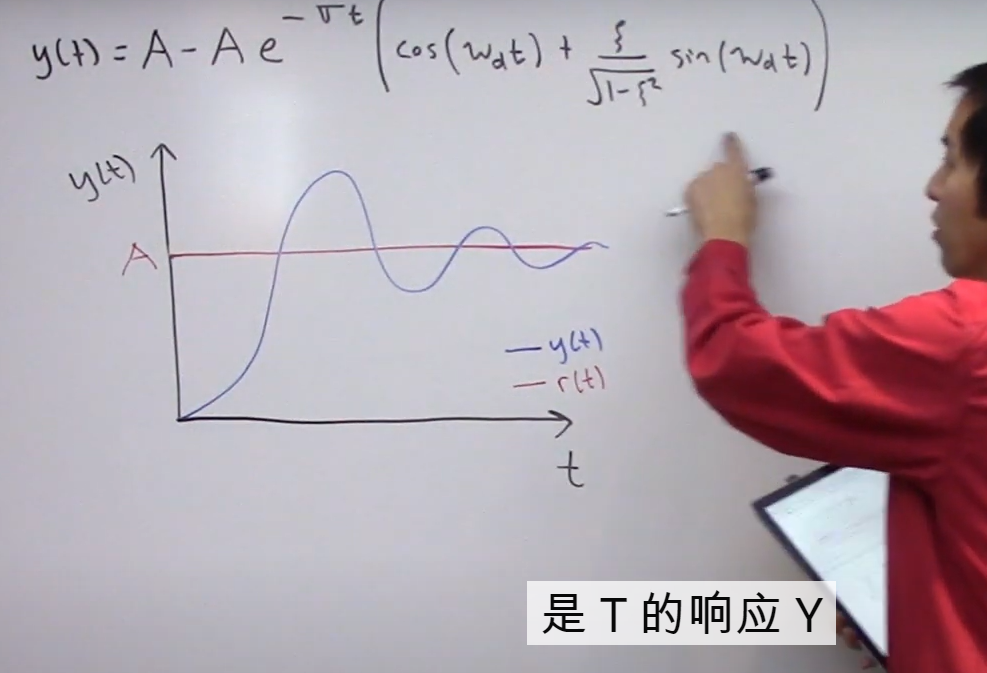 y(t) = A - A e^{-σt} (cos(ω_d t) + ξ/√(1-ξ²) sin(ω_d t))
y(t)
A
— y(t)
— r(t)
t
是 T 的响应 Y